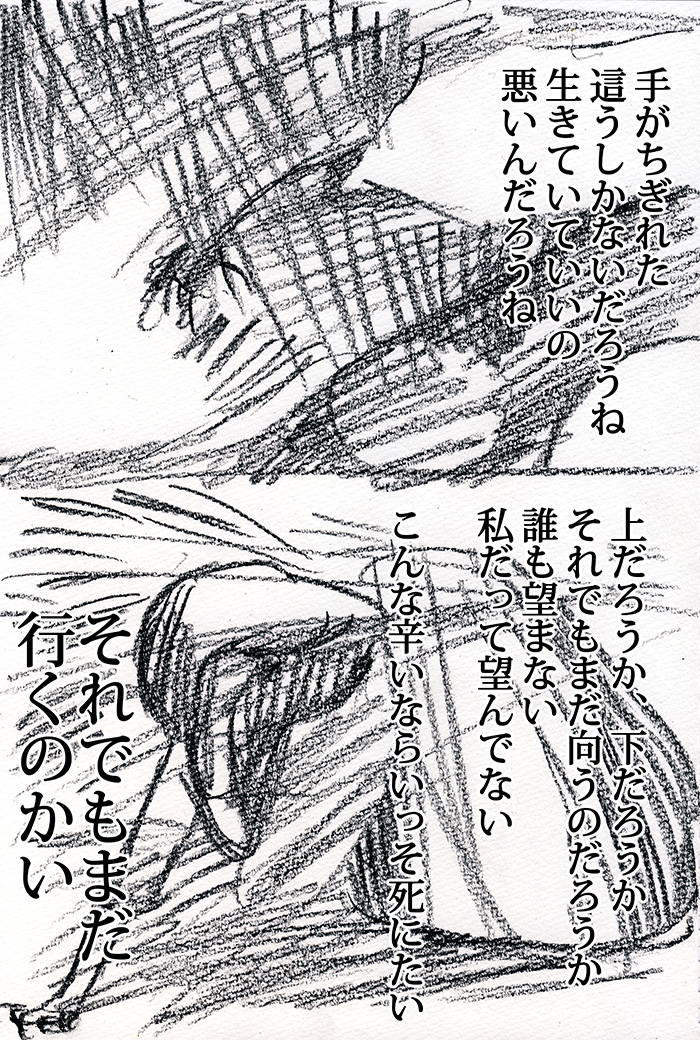 手がちぎれた
這うしかないだろうね
生きていていいの
悪いんだろうね
上だろうか、下だろうか
それでもまだ向うのだろうか
誰も望まない
私だって望んでない
こんな辛いならいっそ死にたい
それでもまだ
行くのかい